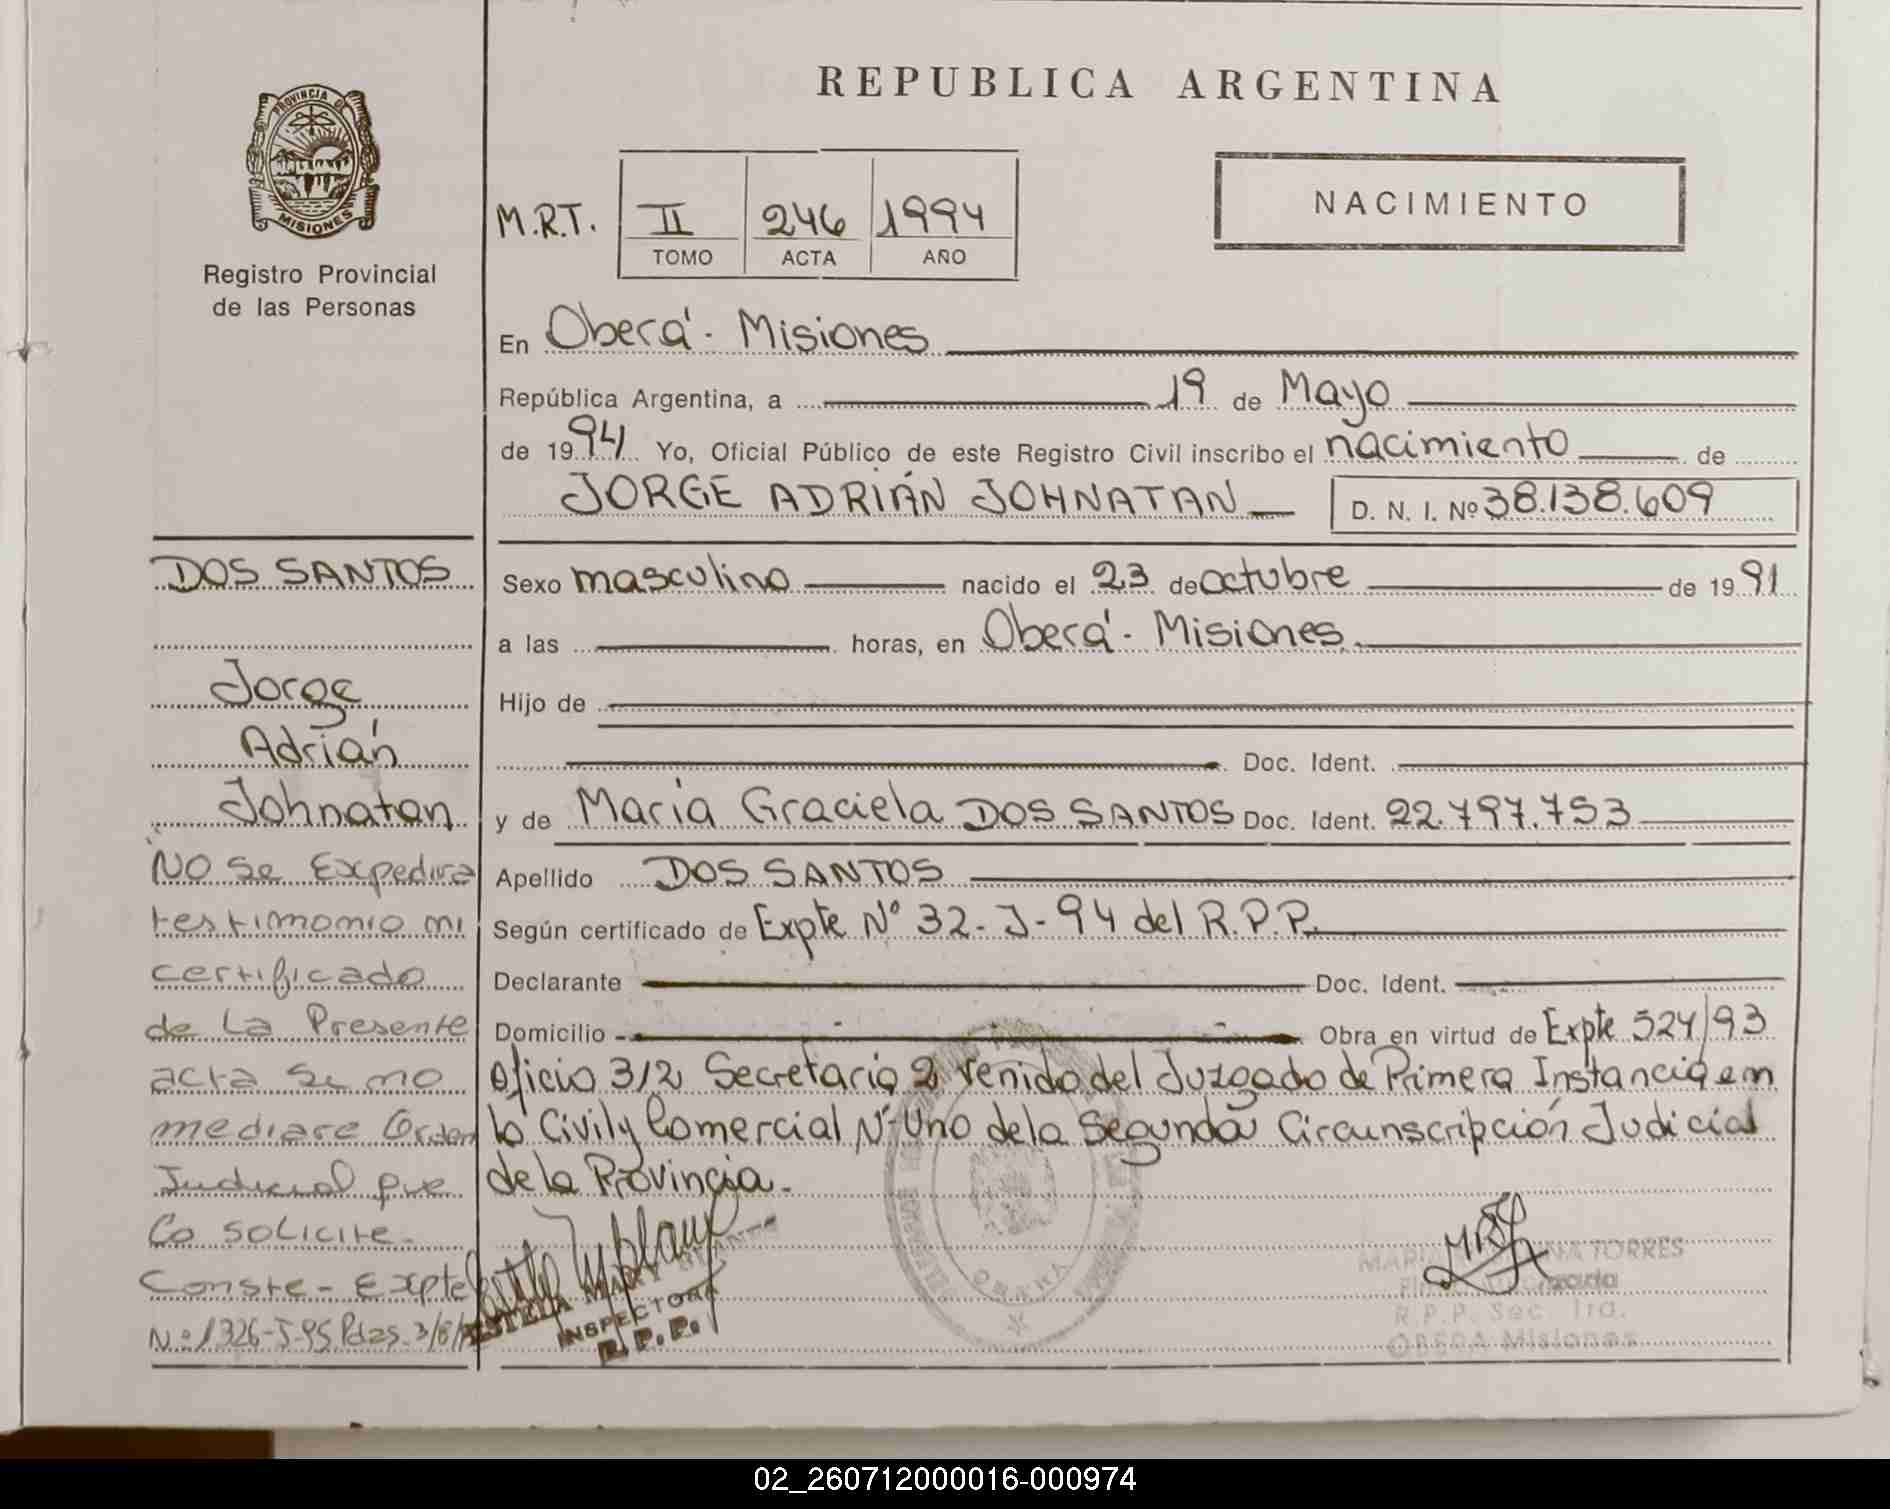 REPUBLICA ARGENTINA
PROVINCIA DE
MISIONES
Registro Provincial
de las Personas
NACIMIENTO
M.R.T. II 246 1994
TOMO ACTA AÑO
En Oberá - Misiones
República Argentina, a 19 de Mayo
de 1994 Yo, Oficial Público de este Registro Civil inscribo el nacimiento de
JORGE ADRIÁN JOHNATAN D. N. I. Nº 38.138.609
Sexo masculino nacido el 23 de octubre de 1991
a las horas, en Oberá - Misiones.
Hijo de
Doc. Ident.
y de María Graciela DOS SANTOS Doc. Ident. 22.797.753
Apellido DOS SANTOS
Según certificado de Expte Nº 32-J-94 del R.P.P.
Declarante Doc. Ident.
Domicilio Obra en virtud de Expte 524/93
Oficio 312 Secretaria 2 venido del Juzgado de Primera Instancia en
lo Civil y Comercial Nº Uno de la Segunda Circunscripción Judicial
de la Provincia.-
DOS SANTOS
Jorge
Adrián
Johnatan
NO Se Expedira
testimonio ni
certificado
de La Presente
acta si no
mediare Orden
Judicial que
Lo solicite.
Conste - Expte
Nº 1326-J-95 Pdas.
ESTELA MARY
INSPECTORA
R.P.P.
OBERA
MARIA TORRES
R.P.P. Sec. 1ra.
OBERA Misiones
02_260712000016-000974